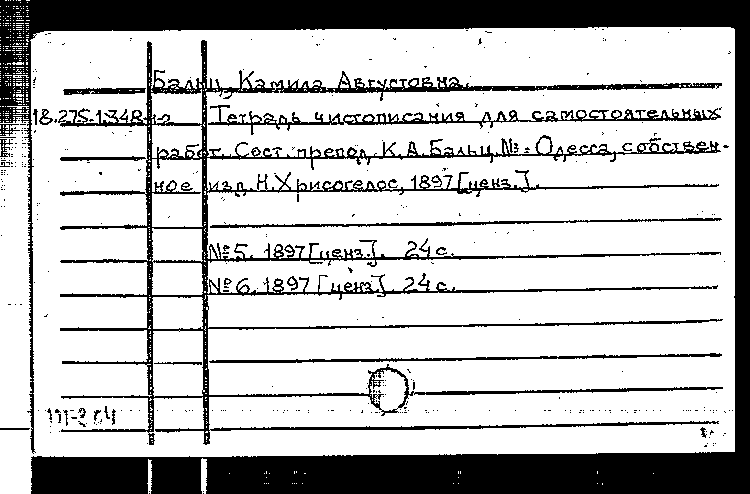 Бальц, Камила Августовна.
18.275.1.348 Тетрадь чистописания для самостоятельных
работ. Сост. препод. К.А.Бальц. №- Одесса, собствен-
ное изд. Н.Хрисогелос, 1897 [ценз.].
№5. 1897 [ценз.]. 24 с.
№6. 1897 [ценз.]. 24 с.